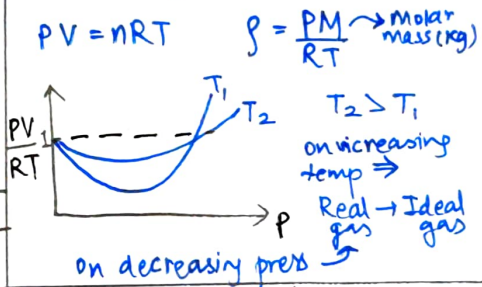 PV = nRT
ρ = PM/RT → Molar mass (Kg)
T₁
T₂
T₂ > T₁
PV/RT
1
P
on increasing temp ⇒
Real gas → Ideal gas
on decreasing press